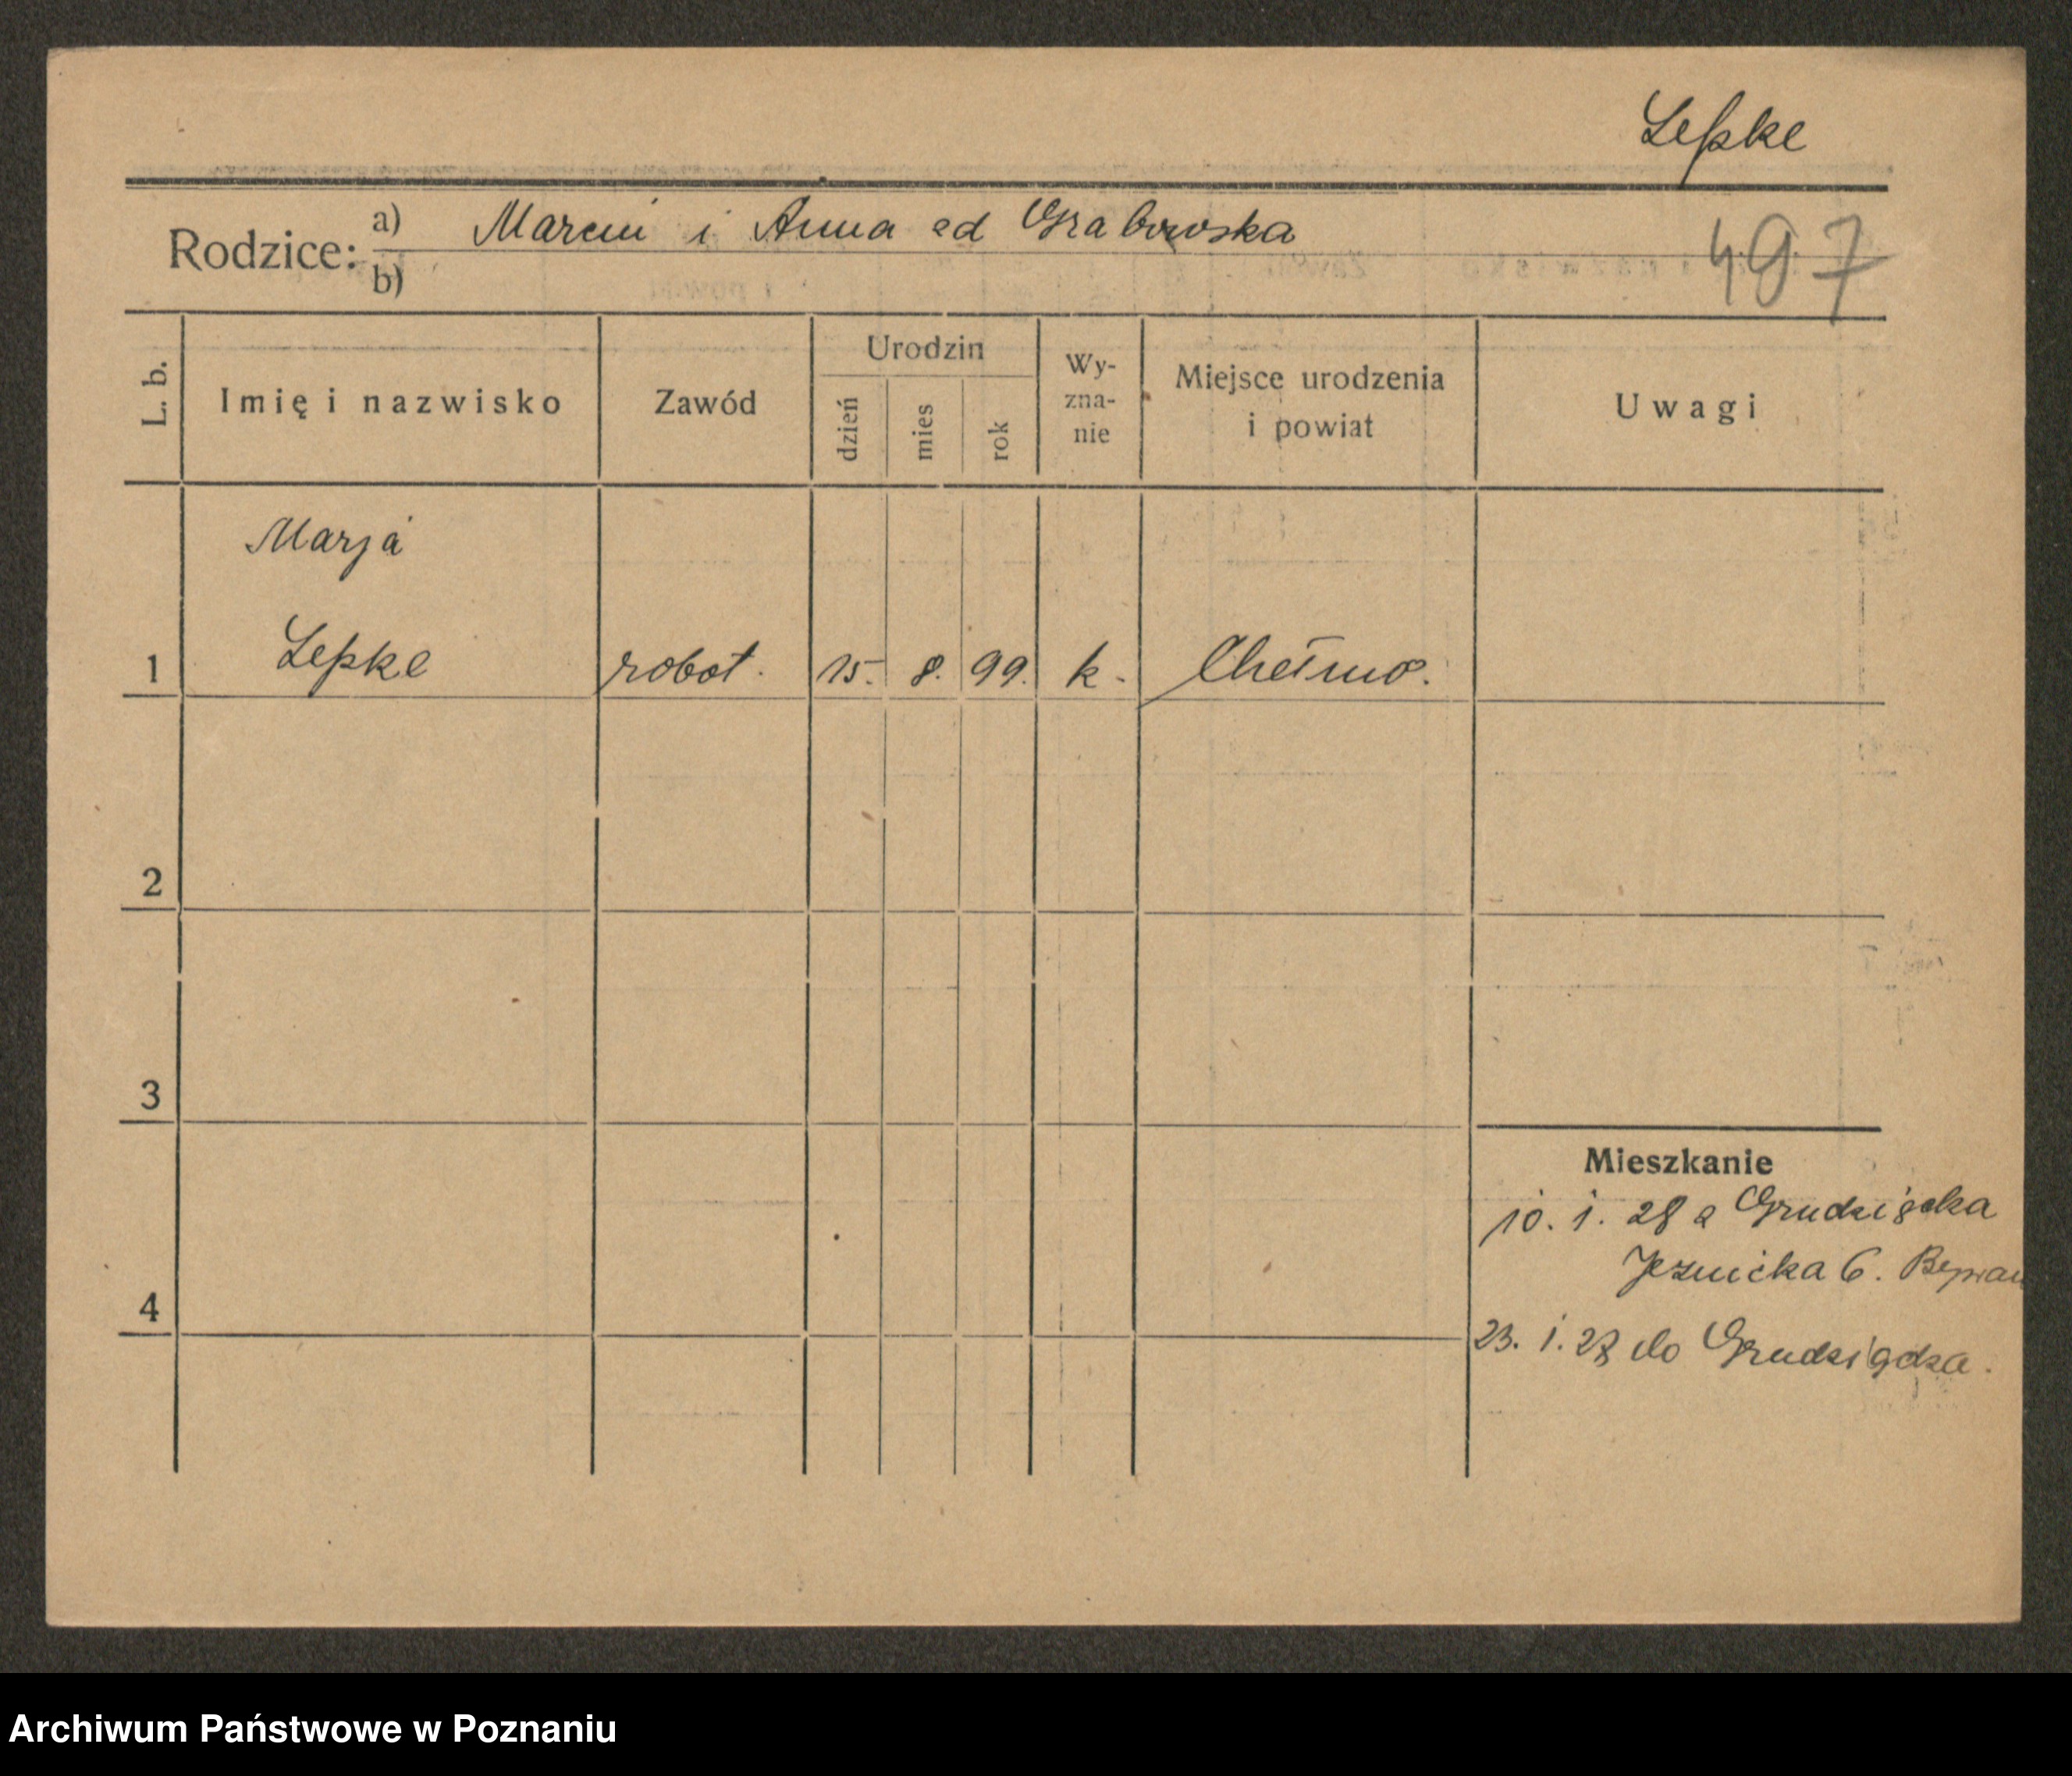 Lepke
Rodzice: a) Marcin i Anna ed Grabowska
b)
497
L. b.
Imię i nazwisko
Zawód
Urodzin
dzień
mies
rok
Wy-
zna-
nie
Miejsce urodzenia
i powiat
Uwagi
Marja
1 Lepke robot. 15. 8. 99. k. Chełmo.
2
3
4
Mieszkanie
10. 1. 28 z Grudziącka
6.
23. 1. 28 do Grudziądza.
Archiwum Państwowe w Poznaniu